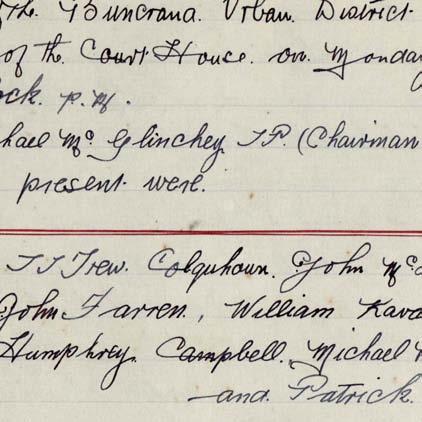 the Buncrana. Urban. District
of the. Court House. on. Monday
ock. p.m.
hael Mc. Glinchey. J.P. (Chairman
present. were.
Trew. Colquhoun. John Mc
John Farren., William Kava
Humphrey. Campbell. Michael
and. Patrick.